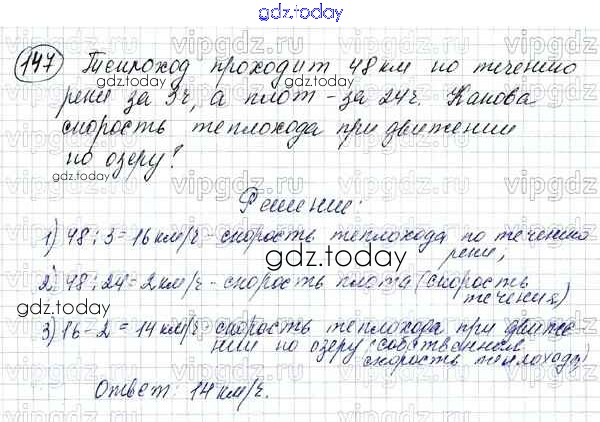 gdz.today
147 Теплоход проходит 48 км по течению
реки за 3ч, а плот - за 24 ч. Какова
скорость теплохода при движении
по озеру?
gdz.today
Решение:
1) 48 : 3 = 16 км/ч - скорость теплохода по течению
реки;
gdz.today
2) 48 : 24 = 2 км/ч - скорость плота (скорость
течения)
gdz.today
3) 16 - 2 = 14 км/ч скорость теплохода при движе-
нии по озеру (собственная
скорость теплохода)
Ответ: 14 км/ч.
gdz.today